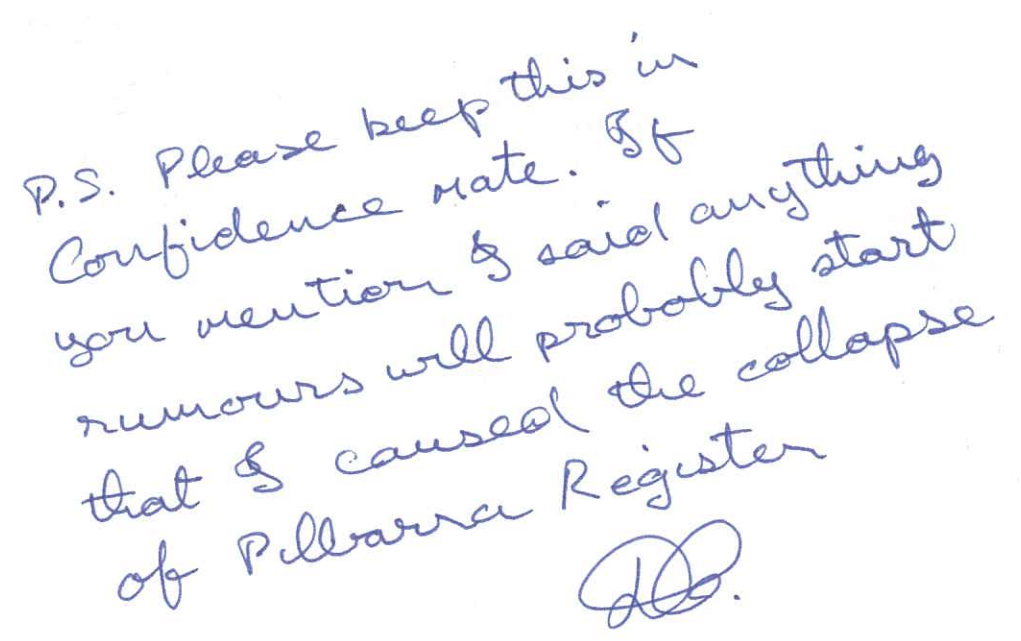 P.S. Please keep this in
Confidence mate. If
you mention I said anything
rumours will probobly start
that I caused the collapse
of Pilbarra Register